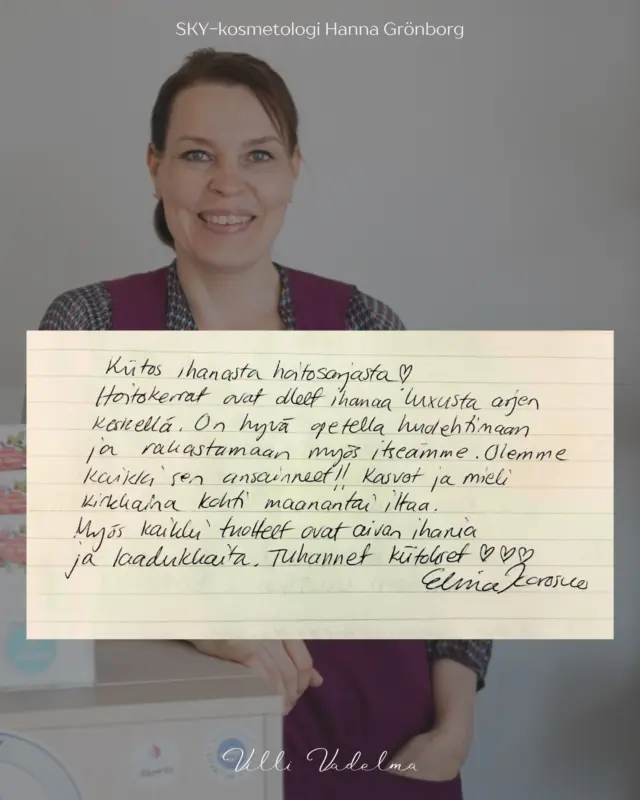 SKY-kosmetologi Hanna Grönborg
Kiitos ihanasta hoitosarjasta ♡
Hoitokerrat ovat olleet ihanaa luxusta arjen
keskellä. On hyvä opetella huolehtimaan
ja rakastamaan myös itseämme. Olemme
kaikki sen ansainneet!! Kasvot ja mieli
kirkkaina kohti maanantai iltaa.
Myös kaikki tuotteet ovat aivan ihania
ja laadukkaita. Tuhannet kiitokset ♡♡♡
Elina
Villi Vadelma